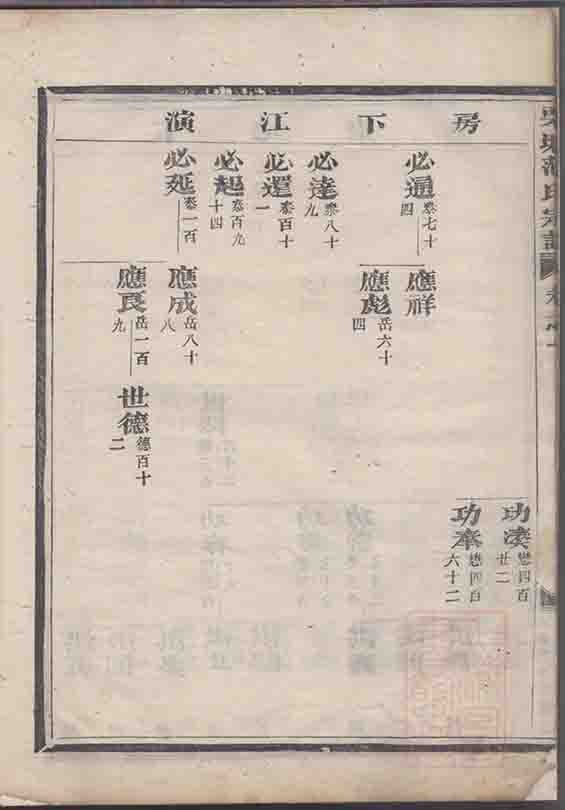 房下江演
功湊 懋四百廿二
功奉 懋四百六十二
必通 泰七十四
應祥
應彪 岳六十四
必達 泰八十九
必還 泰百十一
必起 泰百九十四
必延 泰一百
應成 岳八十八
應良 岳一百九
世德 德百十二